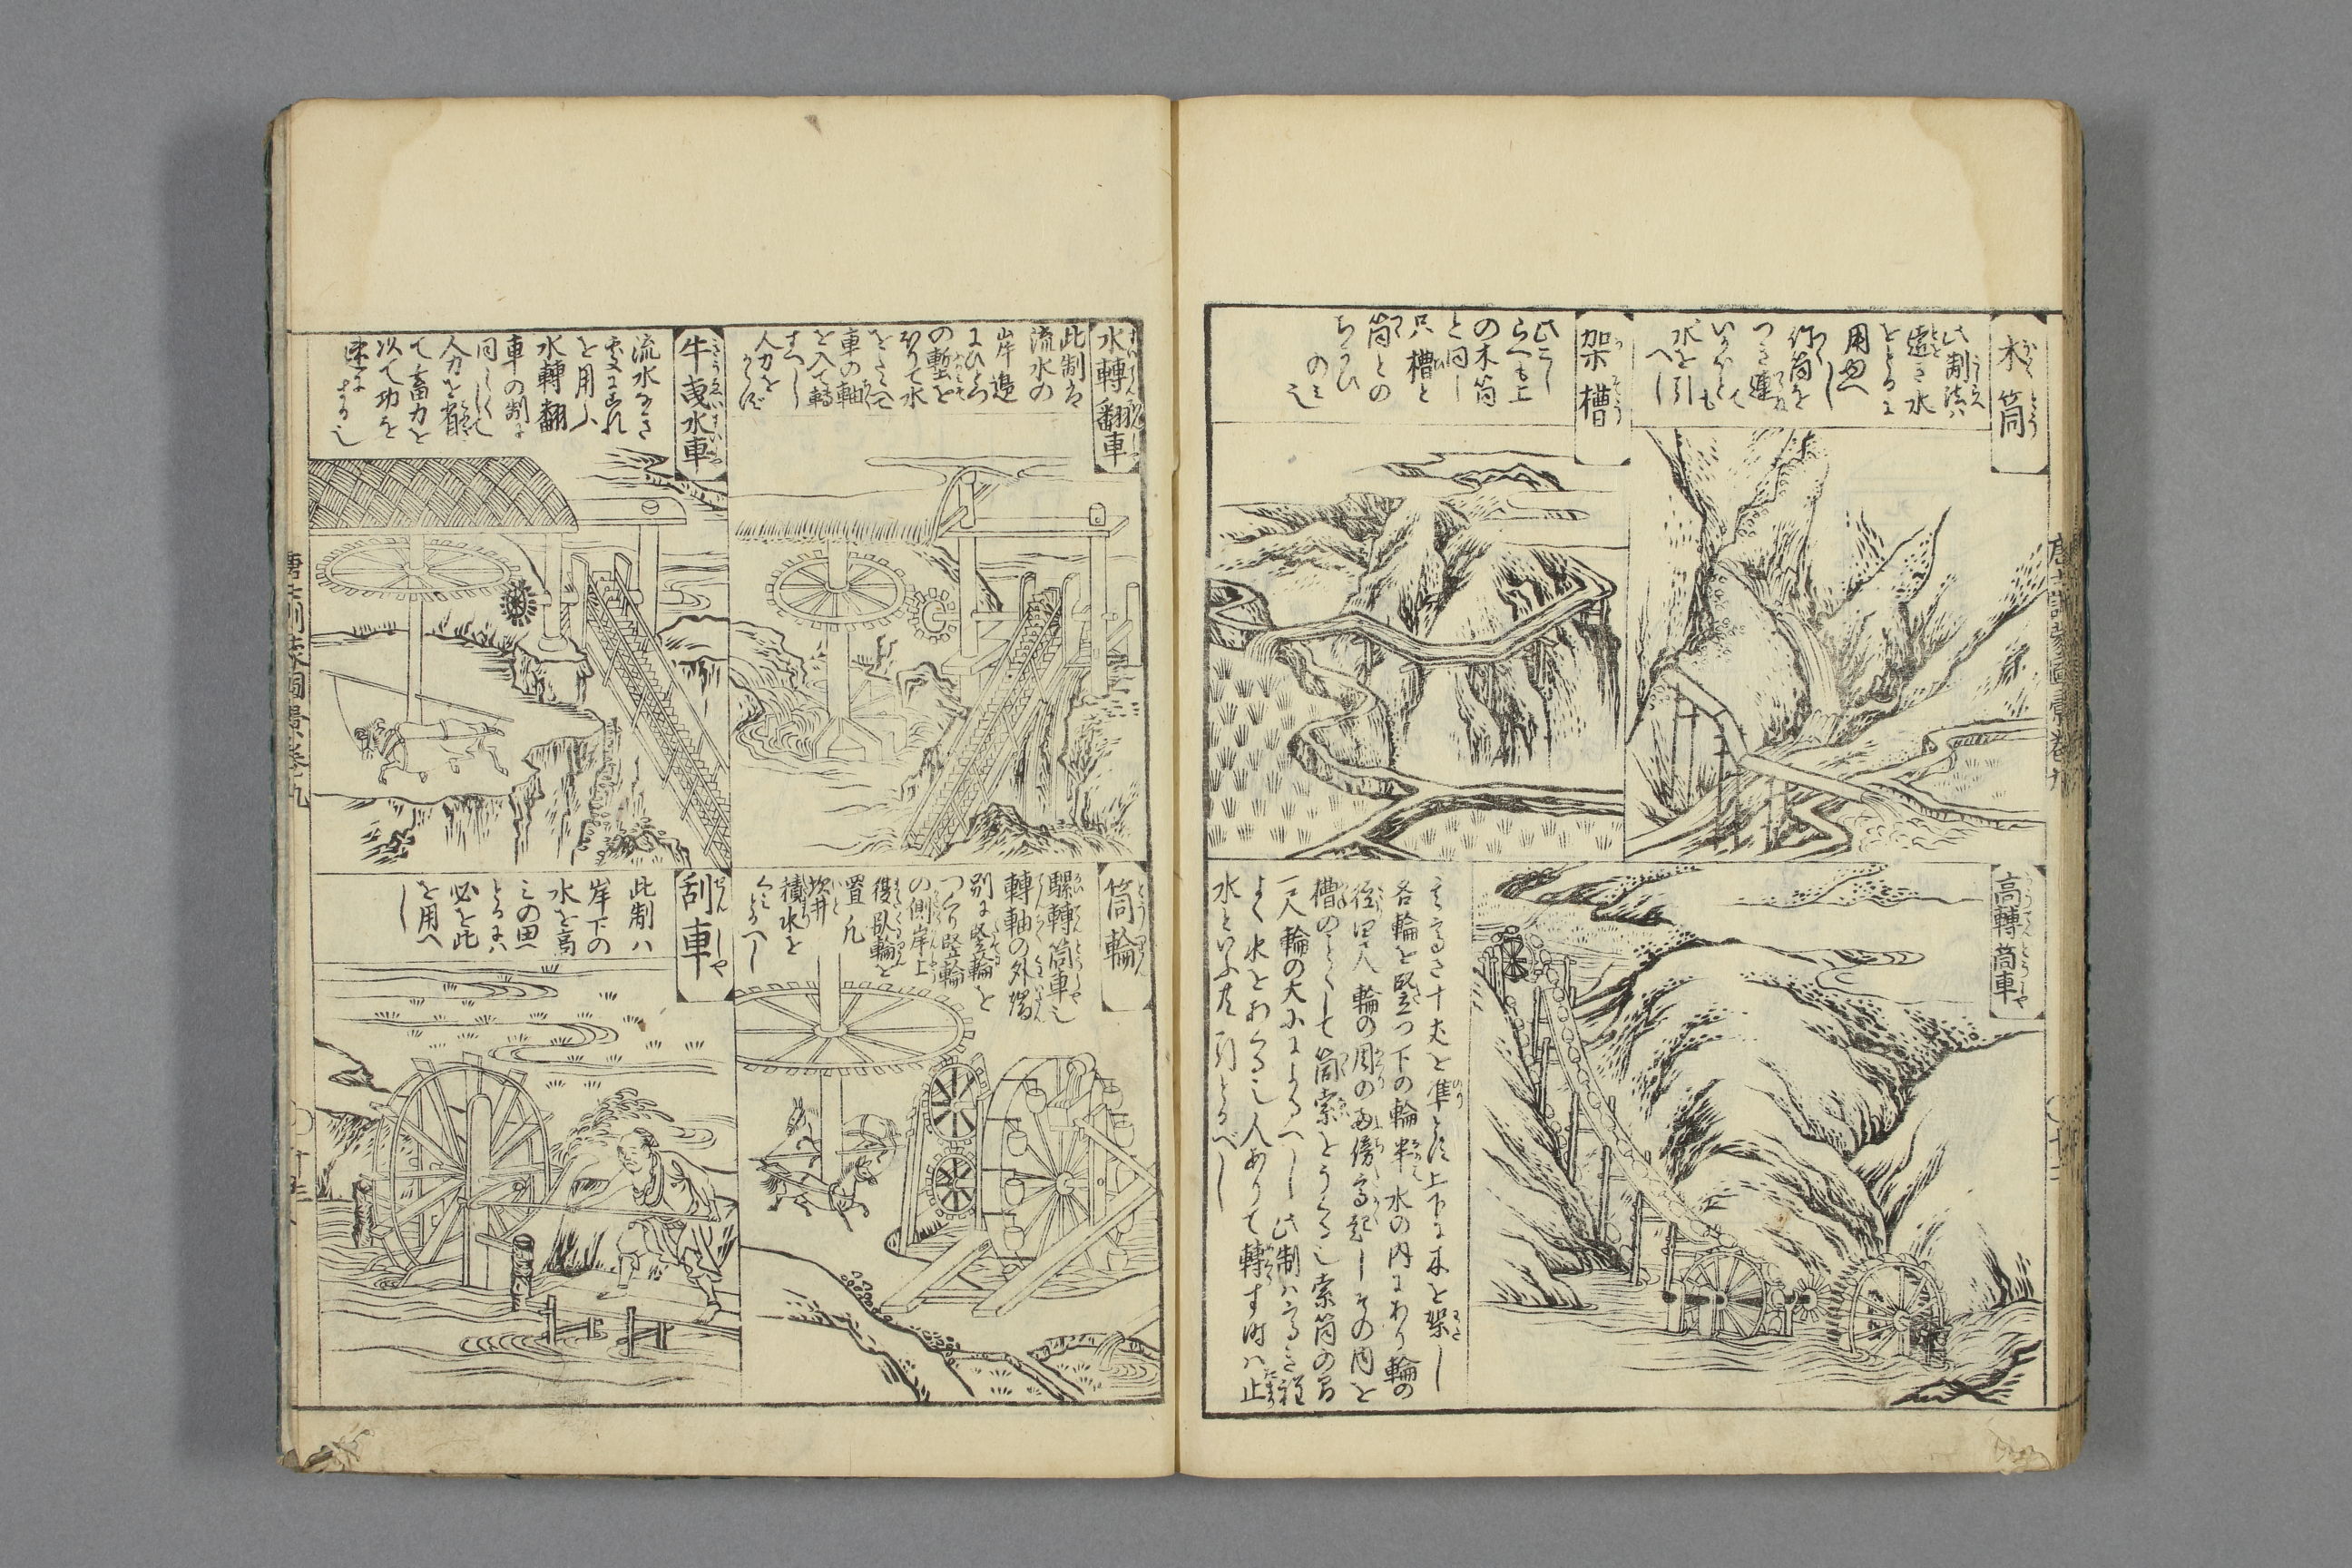 木筒
此制法ハ
遠き水
をとるに
用ゆべし
竹筒を
つき連て
いかほとも
水を引
へし
架槽
此こし
らへも上
の木筒
と同し
只槽と
筒との
ちかひ
のミ也
高轉筒車
其高さ十丈を準とす上下に木を架し
各輪を竪つ下の輪半水の内にあり輪の
径四尺輪の周の両傍高起しその内を
槽のことくして筒索をうくる也索筒の間
一尺輪の大小によるへし此制ハ高き程
よく水をあくる也人ありて轉す時ハ止
水といふ共引とるべし
水轉翻車
此制ハ
流水の
岸邉
にひとつ
の塹を
ほりて水
をたくハへ
車の軸
を入て轉
すへし
人力を
からず
牛曵水車
流水なき
處にこれ
を用ふ
水轉翻
車の制に
同しくして
人力を省
て畜力を
以て功を
速にする也
筒輪
驢轉筒車也
轉軸の外端
別に竪輪を
つくり竪輪
の側岸上
復臥輪を
置凡
坎井
積水を
くミとるへし
刮車
此制ハ
岸下の
水を高
ミの田へ
とるにハ
必を此
を用へ
し
唐土訓蒙圖彙巻九